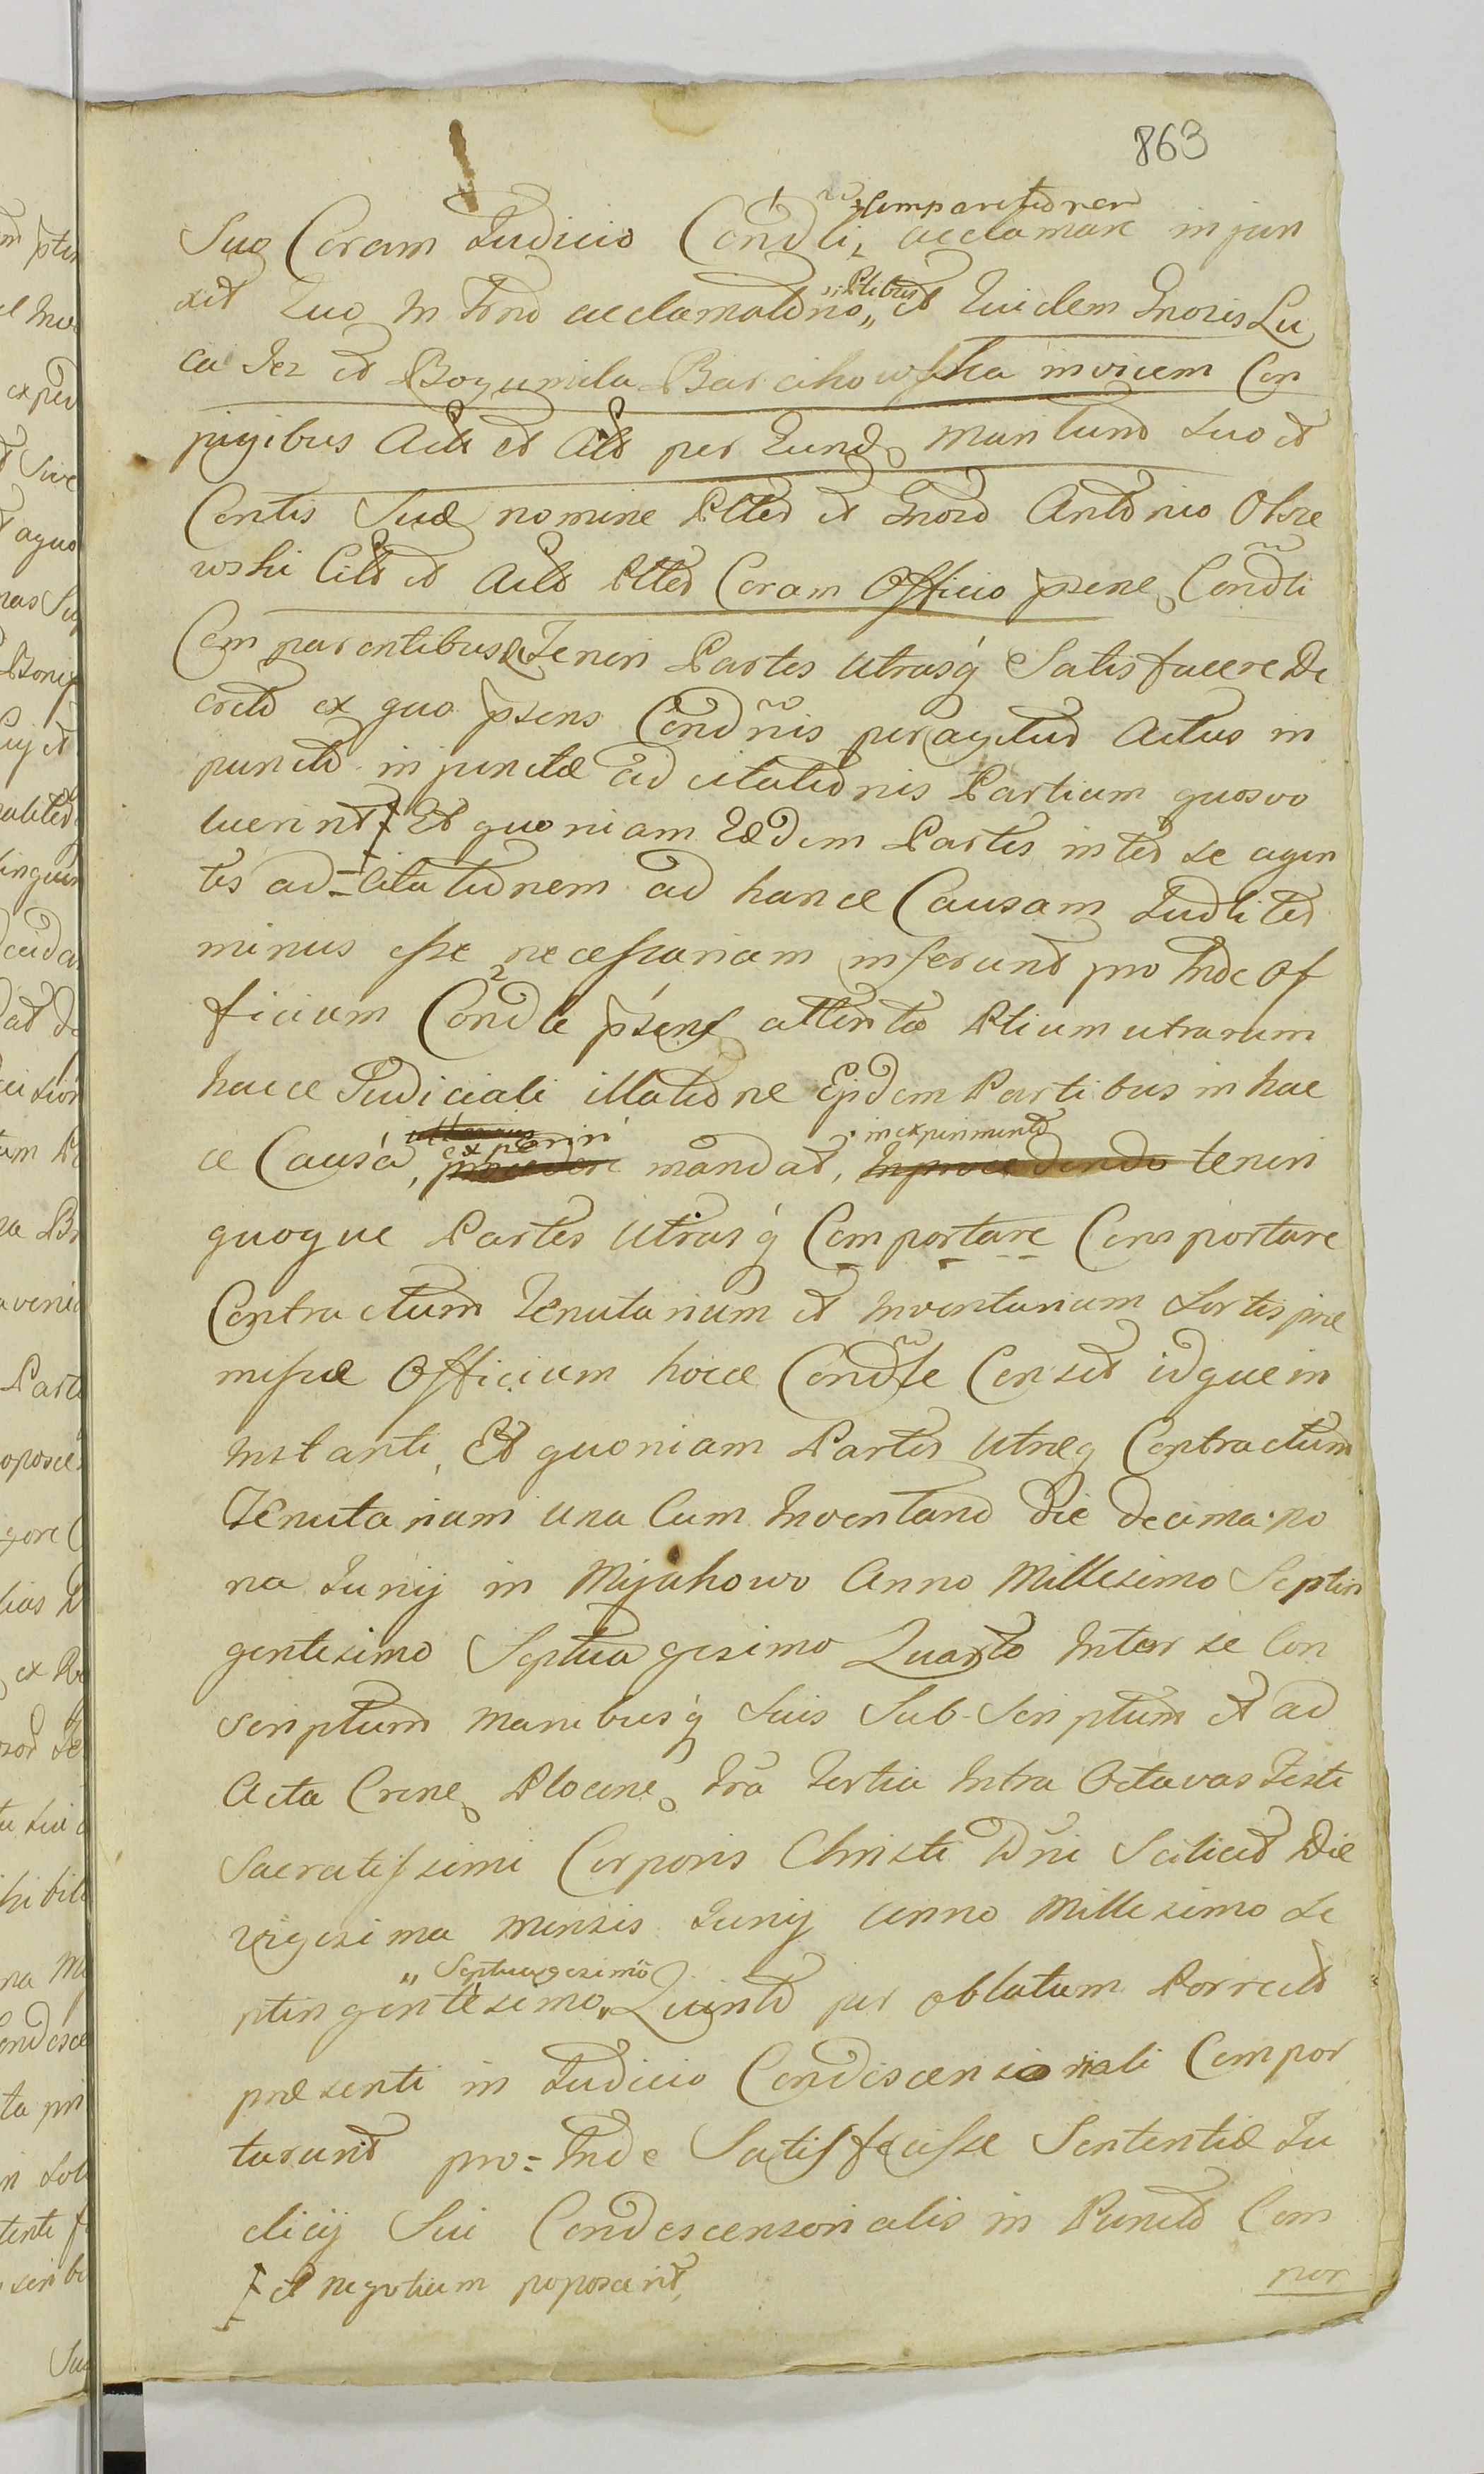 863
Comparitionem
Suo Coram Judicio Condli, acclamare injun
xit Quo in Trno acclamationo,, et Quidem Gnoris Lu
Ptibus
ca Jez et Bogumila Barcikowska invicem Con
jugibus Acti et Citt per Eund Maritum Suo et
Contis Suæ nomine Ptter et Gnoso Antonio Obre
wski Citt et Actt Ptter Coram Officio psene Condli
Comparentibus Teneri Partes Utrasq Satisfacere De
creto ex quo psens Condnis peragitur Actus in
puncto injunctæ ad citationis Partium quosvo
luerint Et quoniam Eædem Partes inter se agen
tes ad=Citationem ad hance Causam Judliter
minus esse necessariam inferunt pro Inde Of
ficium Condle psens attenta Ptium utrarum
hacce Judiciali illatione Ejsdem Partibus in hac
ulterius
experiri in experimento
ce Causa, procedere mandat, In procedendo teneri
quoque Partes Utrasq Comportare Comportare
Contractum Tenutarium et Inventarium Sortis præ
missæ Officium hocce Condle Censet idque in
Instanti, Et quoniam Partes Utræq Contractum
Tenutarium una Cum Inventario Die decima no
na Junij in Mijakowo Anno Millesimo Septin
gentesimo Septuagesimo Quarto Inter se Con
scriptum Manibusq Suis Sub-Scriptum et ad
Acta Crene Plocene Fra Tertia Intra Octavas Festi
Sacratissimi Corporis Christi Dni Scilicet Die
vigesima Mensis Junij Anno Millesimo Se
,, Septuagesimo
ptingentesimo,, Quinto per oblatam Porrecto
præsenti in Judicio Condescensionali Compor
tarunt pro=Inde Satisfecisse Sententiæ Ju
dicij Sui Condescensorialis in Puncto Com
et negotium poposcerit,
por